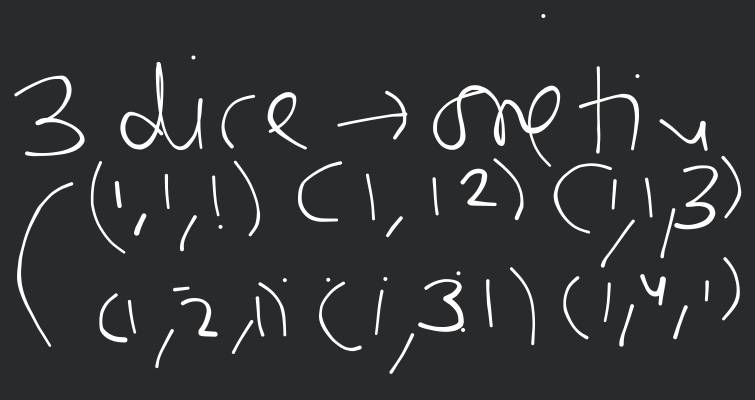 3 dice → one tin
(1,1,1) (1,1 2) (1,1,3)
(1,2,1) (1,3 1) (1,4,1)